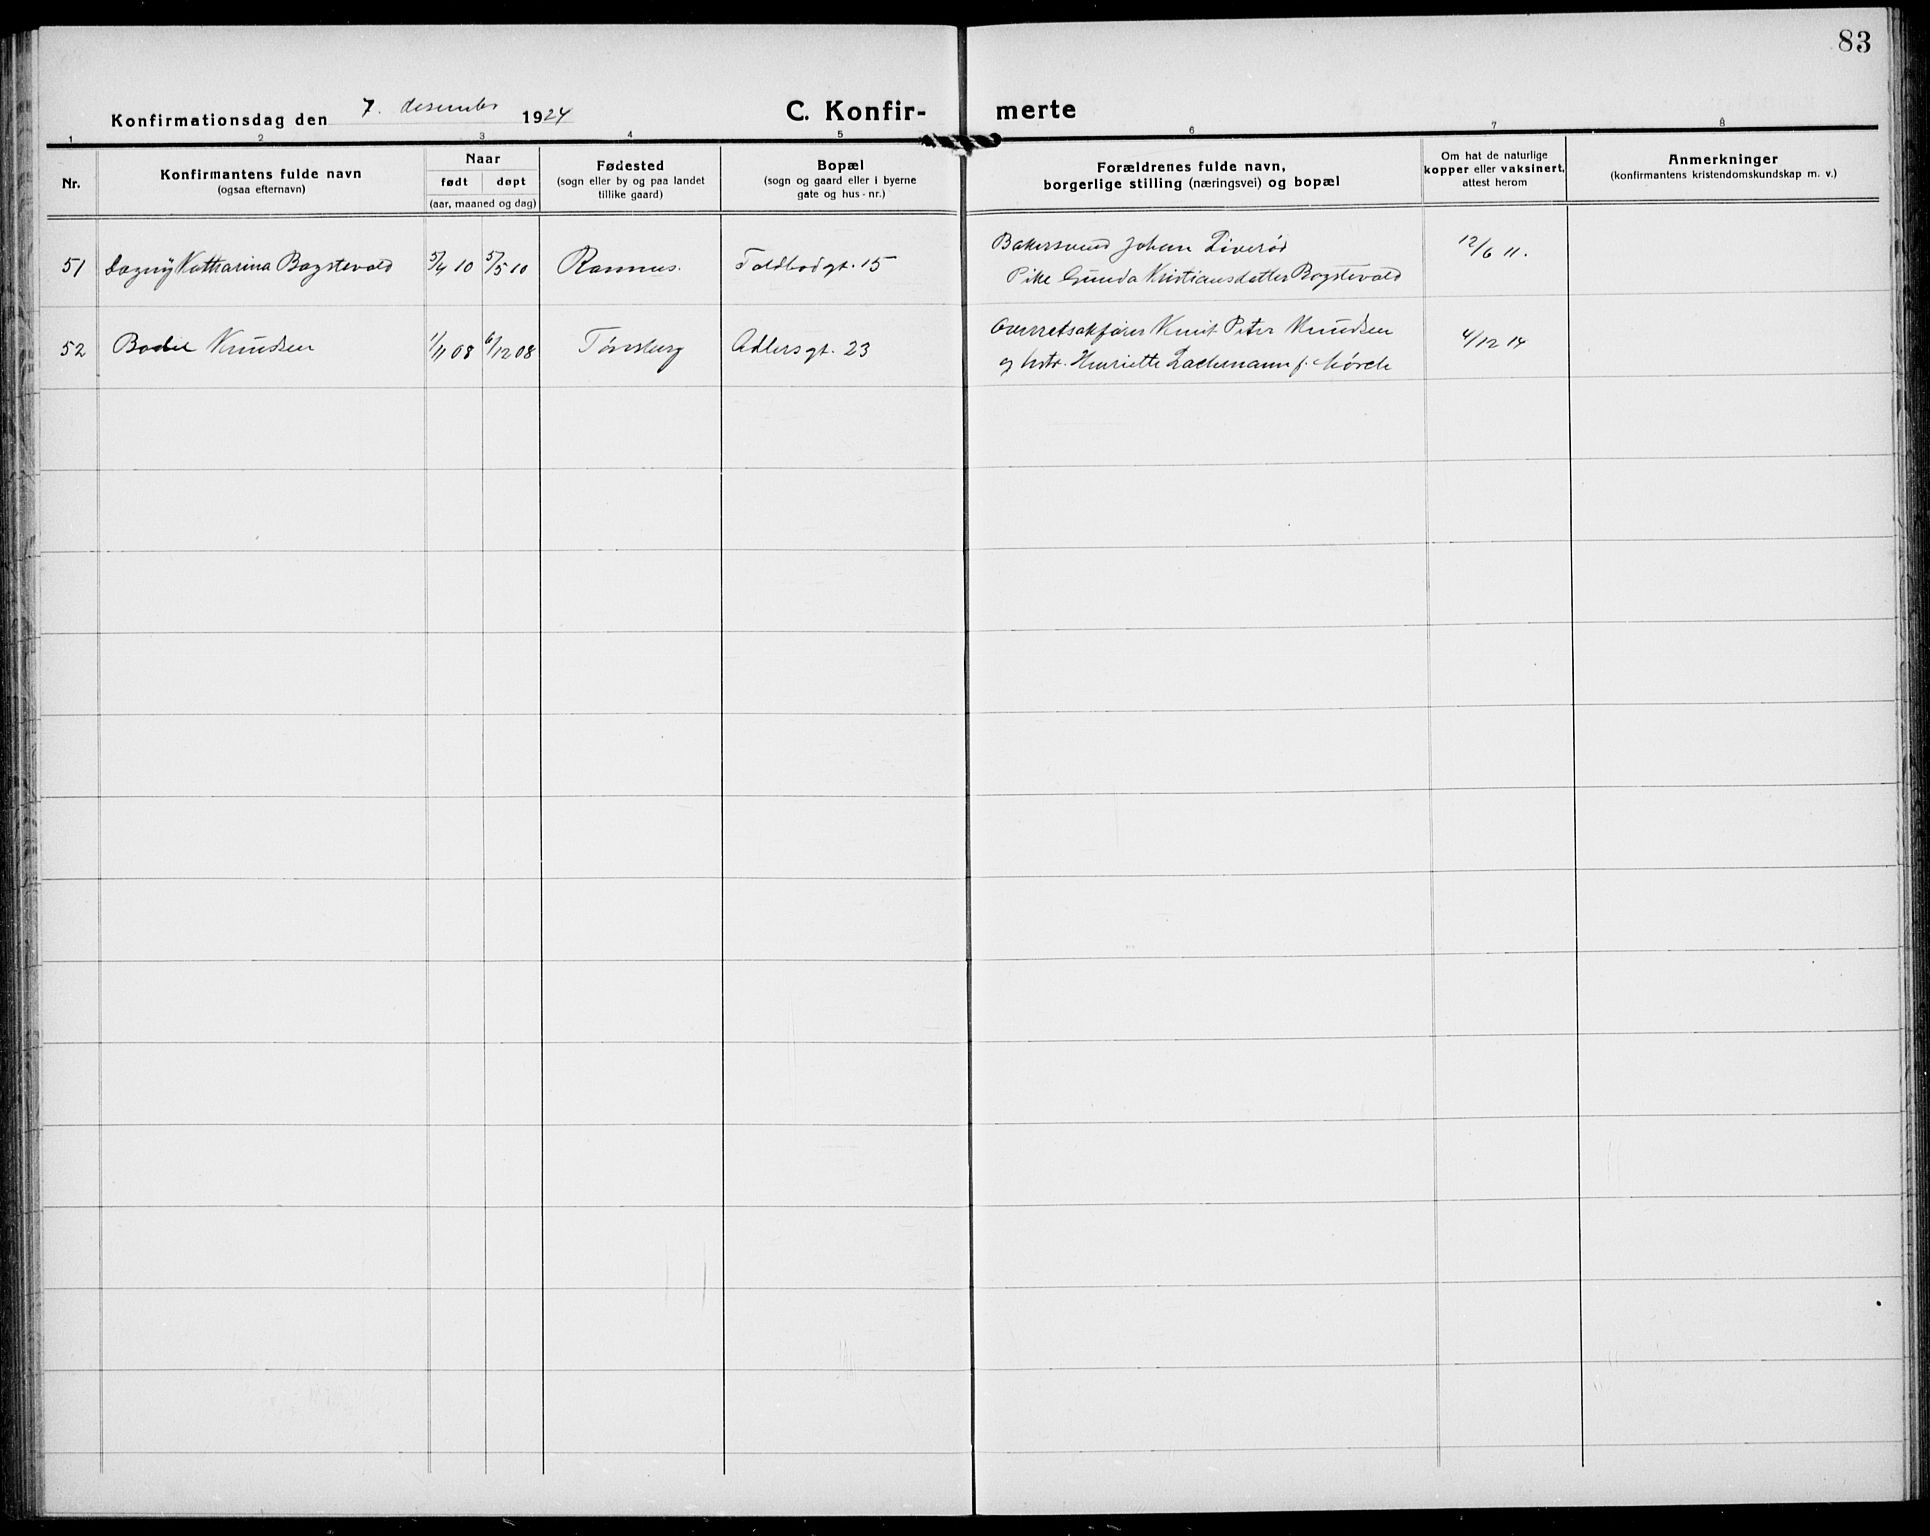 83
Konfirmationsdag den 7. desember 1924
C. Konfir-
merte
1 2 3 4 5 6 7 8
Nr.
Konfirmantens fulde navn
(ogsaa efternavn)
Naar
født døpt
(aar, maaned og dag)
Fødested
(sogn eller by og paa landet
tillike gaard)
Bopæl
(sogn og gaard eller i byerne
gate og hus-nr.)
Forældrenes fulde navn,
borgerlige stilling (næringsvei) og bopæl
Om hat de naturlige
kopper eller vaksinert,
attest herom
Anmerkninger
(konfirmantens kristendomskundskap m. v.)
51 Dagny Katharina Bogstevold 5/4 10 5/5 10 Ramnes. Toldbodgt. 15
Bakersvend Johan Liverød
Pike Gunda Kristiansdatter Bogstevold
12/6 11.
52 Bodil Knudsen 1/11 08 6/12 08 Tønsberg Adlersgt. 23
Overretsakfører Knut Peter Knudsen
og hstr. Henriette Lachmann f. Mørch
4/12 14